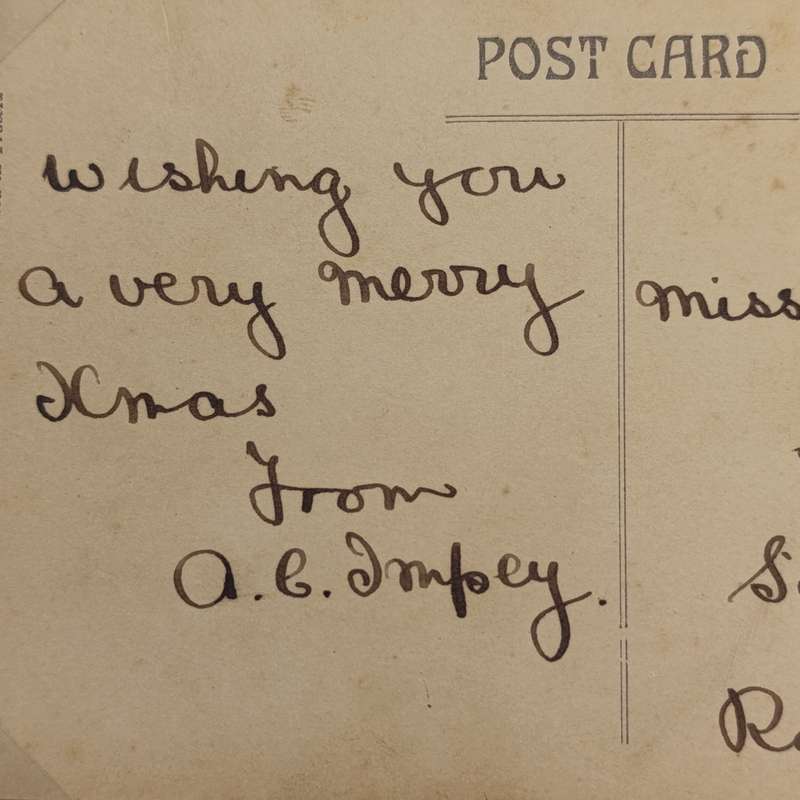 POST CARD
Wishing you
a very merry
Xmas
From
A. C. Impey.
Miss